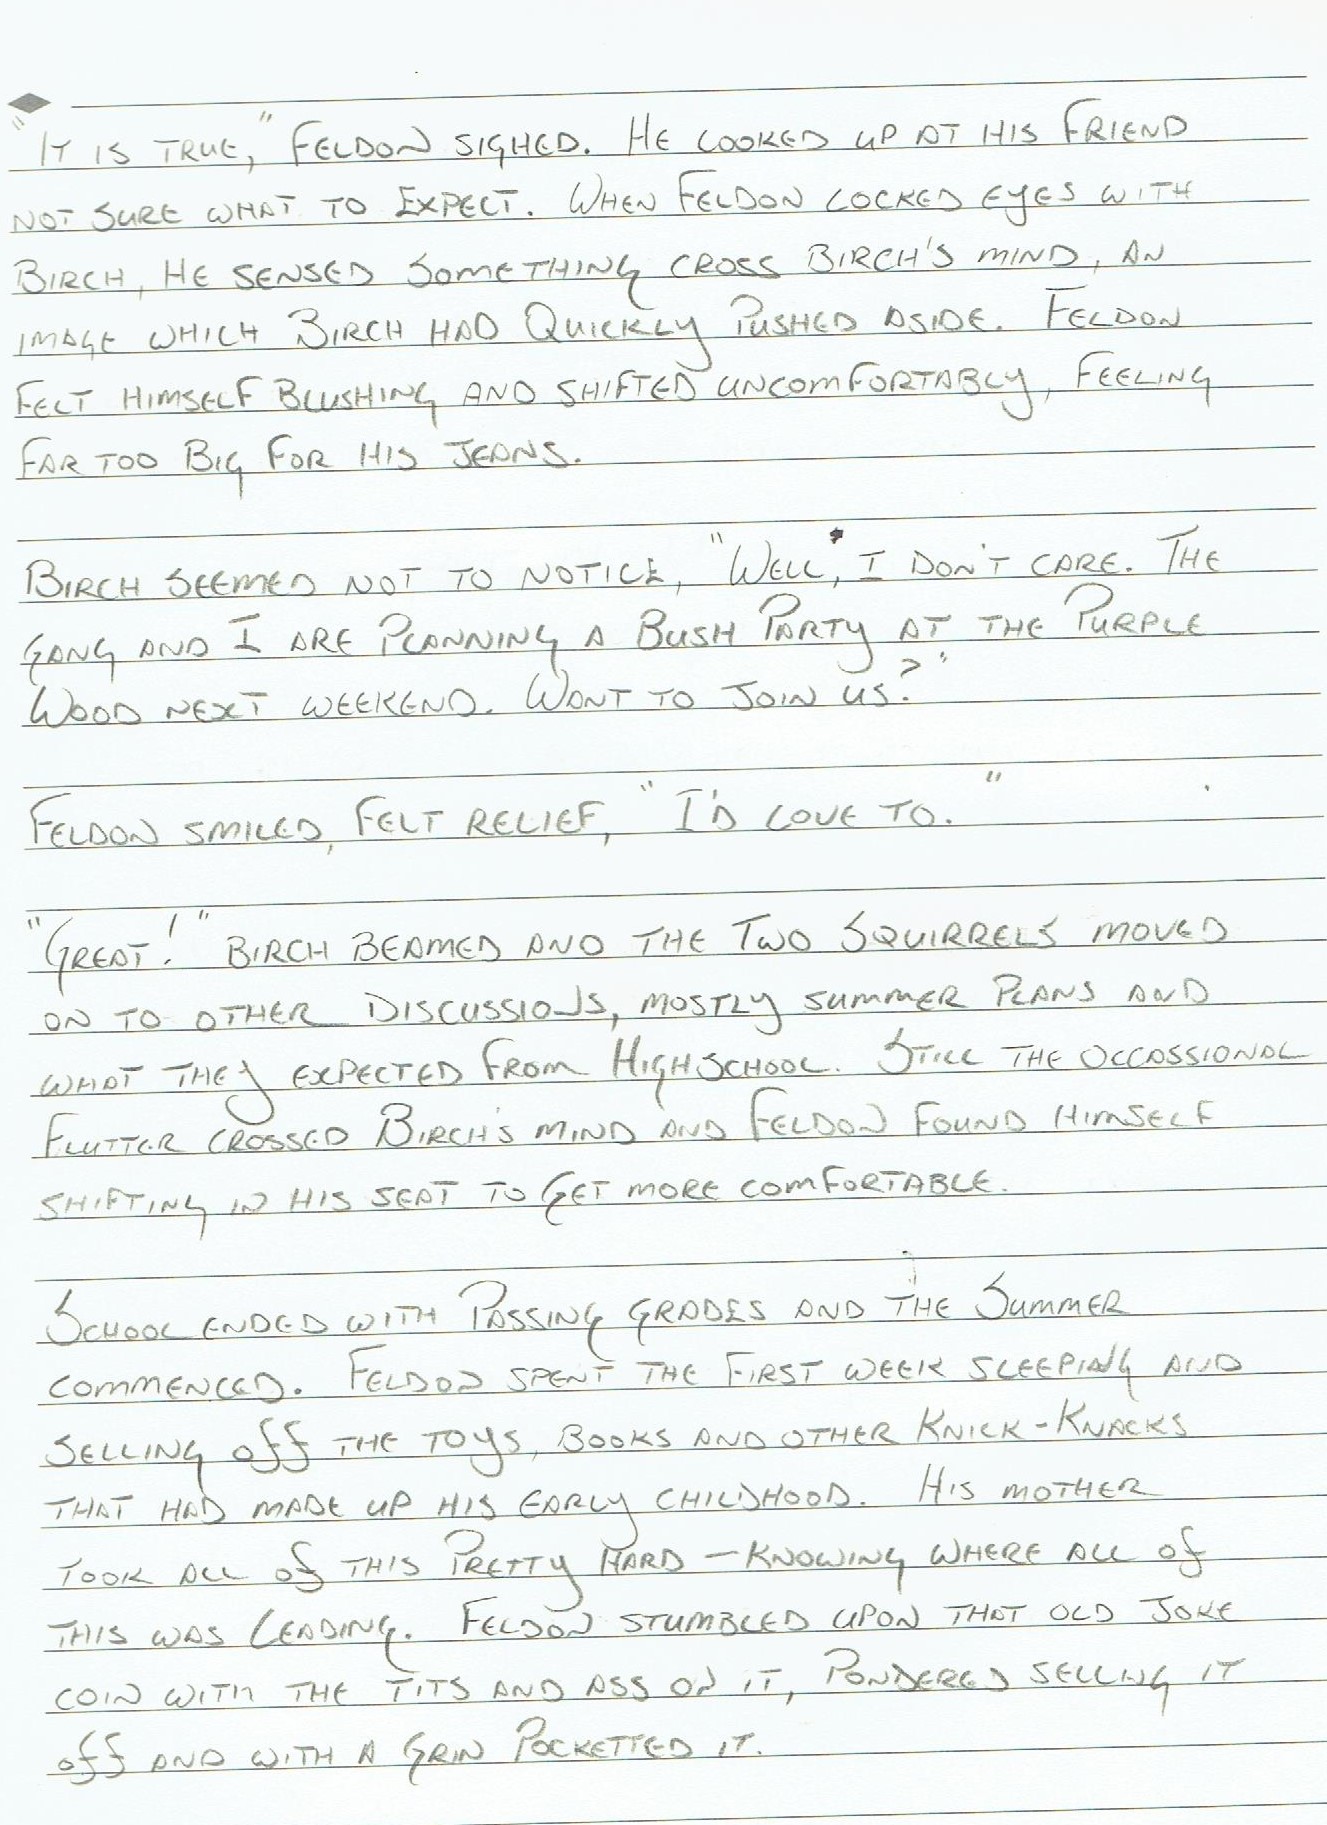 "It is true," Feldon sighed. He looked up at his friend
not sure what to expect. When Feldon locked eyes with
Birch, he sensed something cross Birch's mind, an
image which Birch had quickly pushed aside. Feldon
felt himself blushing and shifted uncomfortably, feeling
far too big for his jeans.
Birch seemed not to notice, "Well, I don't care. The
gang and I are planning a bush party at the Purple
Wood next weekend. Want to join us?"
Feldon smiled, felt relief, "I'd love to."
"Great!" Birch beamed and the two squirrels moved
on to other discussions, mostly summer plans and
what they expected from highschool. Still the occassional
flutter crossed Birch's mind and Feldon found himself
shifting in his seat to get more comfortable.
School ended with passing grades and the summer
commenced. Feldon spent the first week sleeping and
selling off the toys, books and other knick-knacks
that had made up his early childhood. His mother
took all of this pretty hard – knowing where all of
this was leading. Feldon stumbled upon that old joke
coin with the tits and ass on it, pondered selling it
off and with a grin pocketted it.